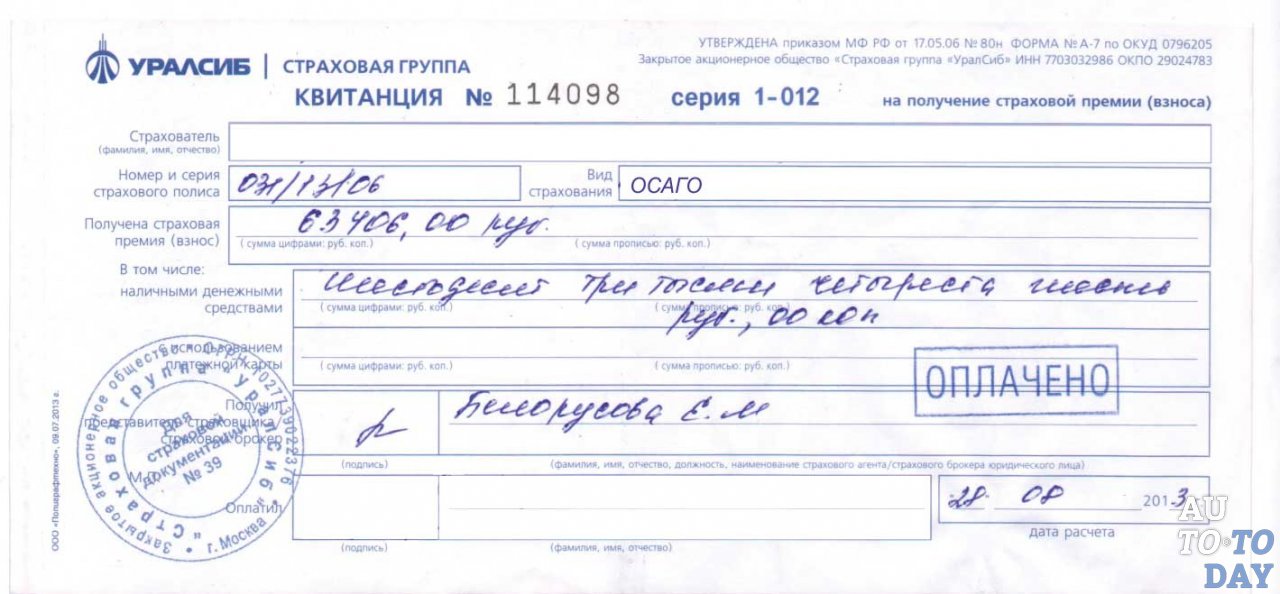 УТВЕРЖДЕНА приказом МФ РФ от 17.05.06 № 80н ФОРМА № А-7 по ОКУД 0796205
Закрытое акционерное общество «Страховая группа «УралСиб» ИНН 7703032986 ОКПО 29024783
УРАЛСИБ | СТРАХОВАЯ ГРУППА
КВИТАНЦИЯ № 114098 серия 1-012 на получение страховой премии (взноса)
Страхователь
(фамилия, имя, отчество)
Номер и серия
страхового полиса
Вид
страхования
ОСАГО
Получена страховая
премия (взнос)
63406,00 руб.
(сумма цифрами: руб. коп.) (сумма прописью: руб. коп.)
В том числе:
наличными денежными
средствами
Шестьдесят три тысячи четыреста шесть
(сумма цифрами: руб. коп.) (сумма прописью: руб. коп.)
руб., 00 коп
с использованием
платежной карты
(сумма цифрами: руб. коп.) (сумма прописью: руб. коп.)
ОПЛАЧЕНО
Получил
представитель страховщика/
страховой брокер
Белорусова Е. М
(подпись) (фамилия, имя, отчество, должность, наименование страхового агента/страхового брокера юридического лица)
М.П.
Закрытое акционерное общество • ОГРН 1027739022376 • г. Москва
"Страховая группа "УралСиб"
Для
страховой
документации
№ 39
Оплатил
(подпись) (фамилия, имя, отчество)
28 08 2013
дата расчета
ООО «Полиграфтехно», 09.07.2013 г.
AU
TO TO
DAY